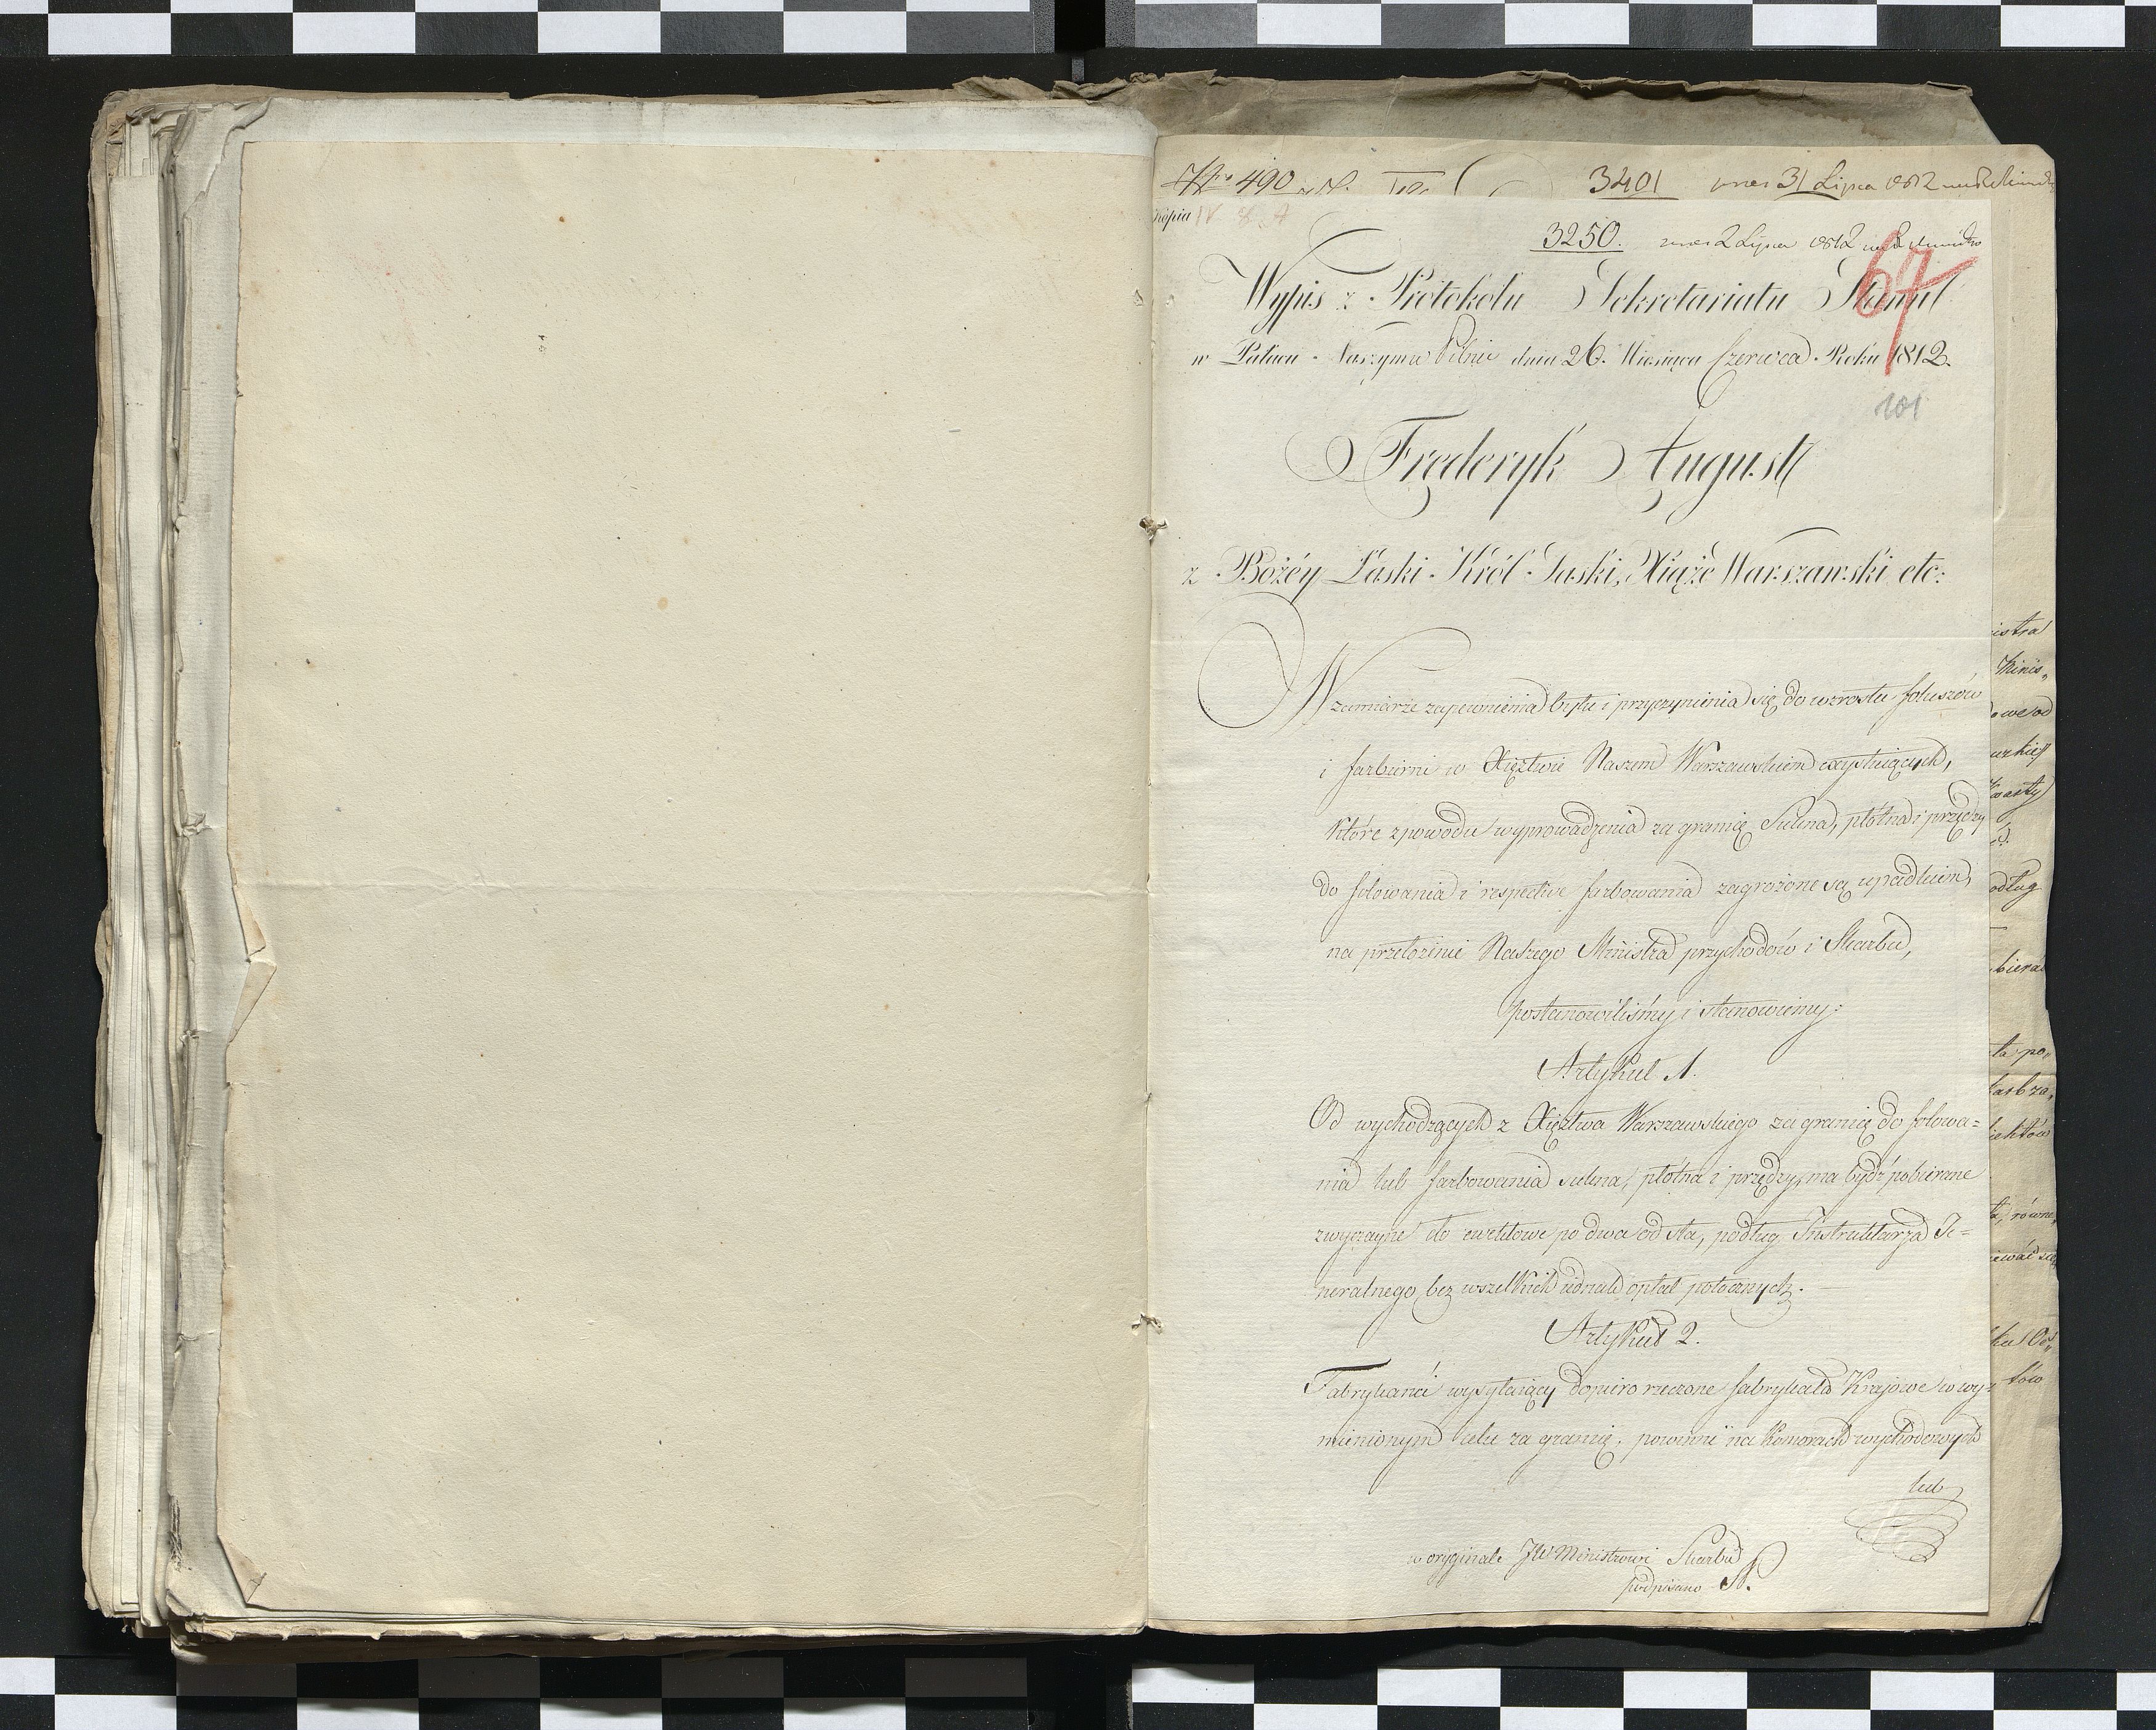 Nro 490
3401 31 Lipca 1812
Kopia IV 8 A
3250. 2 Lipca 1812
67
Wypis z Protokołu Sekretariatu Stanu
w Pałacu Naszym w Pilnic dnia 26. Miesiąca Czerwca Roku 1812.
101
Fryderyk August
z Bożéy Łaski Król Saski, Xiąże Warszawski etc:
W zamiarze zapewnienia bytu i przyczynienia się do wzrostu foluszów
i farbierni w Xięztwie Naszem Warszawskiem exystuiących,
które z powodu wyprowadzenia za granicę Sukna, płótna i przędzy
do folowania i respective farbowania zagrożone są upadkiem,
na przełożenie Naszego Ministra przychodów i Skarbu,
postanowiliśmy i stanowiemy:
Artykuł 1.
Od wychodzących z Xięztwa Warszawskiego za granicę do folowa=
nia lub farbowania sukna, płótna i przędzy, ma bydź pobierane
zwyczayne cło ewektowe po dwa od sta, podług Instruktarza Je=
neralnego, bez wszelkich iednak opłat potocznych.
Artykuł 2.
Fabrykanci wysyłaiący dopiero rzeczone fabrykata Krajowe w wy=
mienionym celu za granicę, powinni na Komorach wychodowych
lub
w oryginale JW Ministrowi Skarbu
podpisano
istra
Minis„
owe od
arty
odług
biera
ta po„
ektów
ta, równe„
iewać się
tów